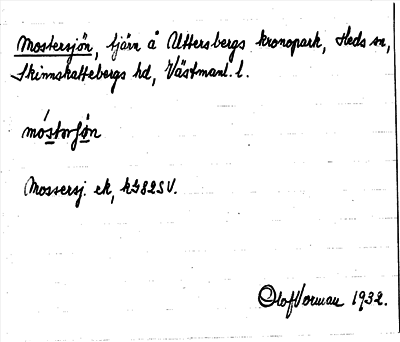 Mostersjön, tjärn å Uttersbergs kronopark, Heds sn,
Skinnskattebergs hd, Västmanl. l.
móstorʃø̀n
Mossersj. ek, kJ82SV.
Olof Vorman 1932.